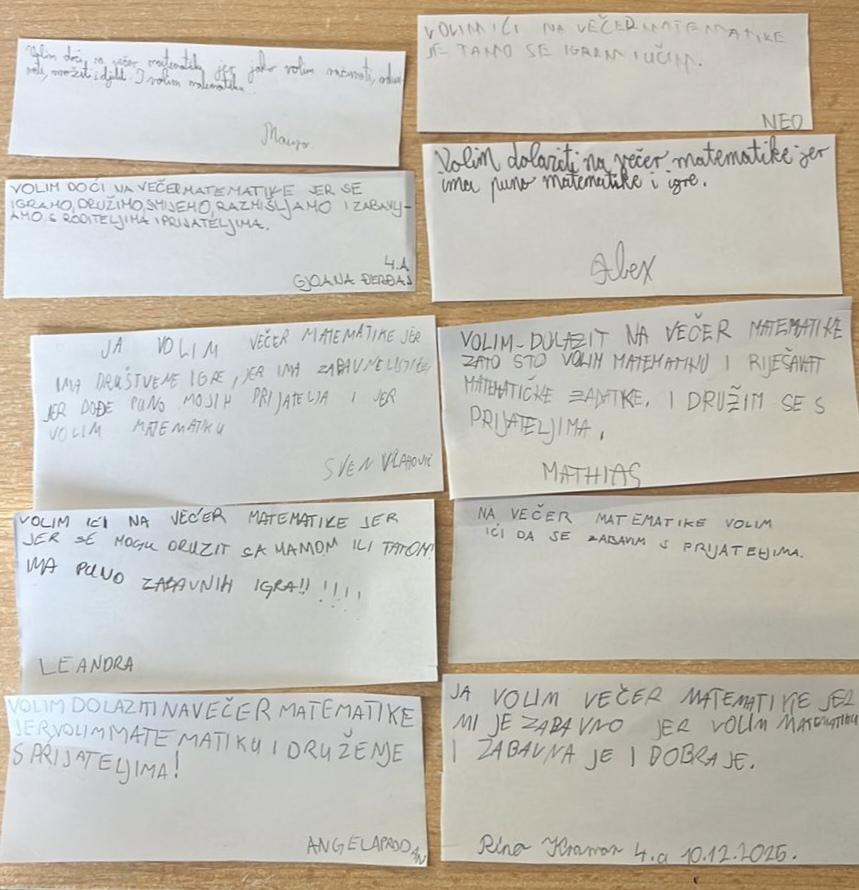 Volim doći na večer matematike jer jako volim računati, oduzi-
mati, množiti i djeliti. I volim matematiku.
VOLIM IĆI NA VEČER MATEMATIKE
JE TAMO SE IGRAM I UČIM.
NEO
VOLIM DOĆI NA VEČER MATEMATIKE JER SE
IGRAMO, DRUŽIMO, SMIJEMO, RAZMIŠLJAMO I ZABAVLJ-
AMO S RODITELJIMA I PRIJATELJIMA.
4.A
GJOANA
Volim dolaziti na večer matematike jer
ima puno matematike i igre.
Alex
JA VOLIM VEČER MATEMATIKE JER
IMA DRUŠTVENE IGRE, JER IMA ZABAVNE
JER DOĐE PUNO MOJIH PRIJATELJA I JER
VOLIM MATEMATIKU
SVEN VLAHOVIĆ
VOLIM DOLAZIT NA VEČER MATEMATIKE
ZATO ŠTO VOLIM MATEMATIKU I RIJEŠAVAT
MATEMATIČKE ZADATKE, I DRUŽIM SE S
PRIJATELJIMA.
MATHIAS
VOLIM IĆI NA VEČER MATEMATIKE JER
JER SE MOGU DRUŽIT SA MAMOM ILI TATOM!
IMA PUNO ZABAVNIH IGRA!! !!!!
LEANDRA
NA VEČER MATEMATIKE VOLIM
IĆI DA SE ZABAVIM S PRIJATELJIMA.
VOLIM DOLAZITI NA VEČER MATEMATIKE
JER VOLIM MATEMATIKU I DRUŽENJE
S PRIJATELJIMA!
JA VOLIM VEČER MATEMATIKE JER
MI JE ZABAVNO JER VOLIM MATEMATIKU
I ZABAVNA JE I DOBRA JE.
4.a 10.12.2025.